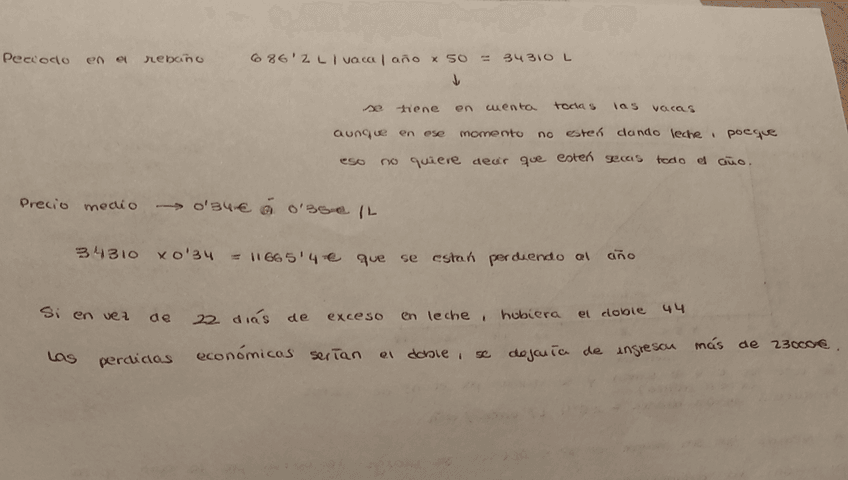 Periodo en el rebaño 686'2 L | vaca | año × 50 = 34310 L
↓
se tiene en cuenta todas las vacas
aunque en ese momento no estén dando leche, porque
eso no quiere decir que estén secas todo el año.
Precio medio → 0'34€ ó 0'35€ /L
34310 × 0'34 = 11665'4€ que se están perdiendo al año
Si en vez de 22 diás de exceso en leche, hubiera el doble 44
Las perdidas económicas serían el doble, se dejaría de ingresar más de 23000€.